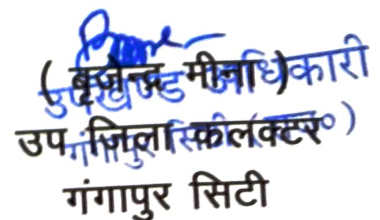 (बृजेन्द्र मीना)
उपखण्ड अधिकारी
उप जिला कलक्टर
गंगापुर सिटी (राज०)
गंगापुर सिटी